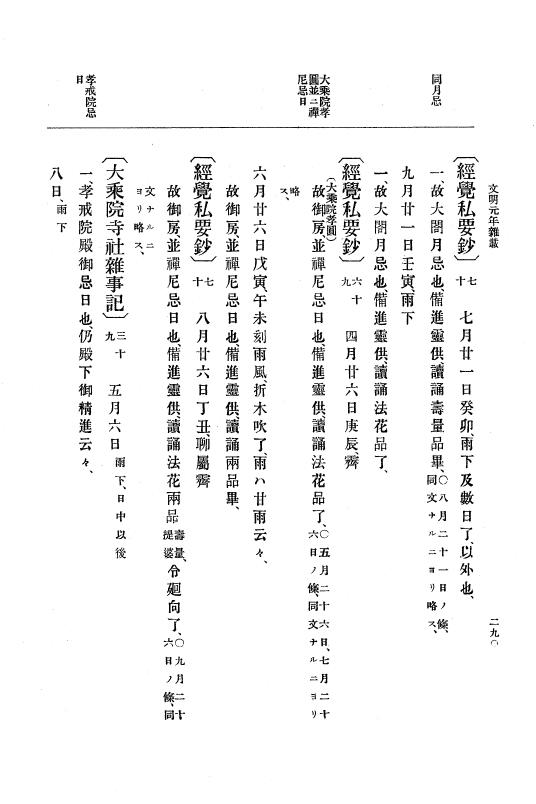 文明元年雜載
二九〇
同月忌
大乘院孝
圓並ニ禪
尼忌日
孝戒院忌
日
〔經覺私要鈔〕 七十 七月廿一日癸卯、雨下及數日了、以外也、
一、故大閤月忌也、備進靈供、讀誦壽量品畢、〇八月二十一日ノ條、同文ナルニヨリ略ス、
九月廿一日壬寅、雨下
一、故大閤月忌也、備進靈供、讀誦法花品了、
〔經覺私要鈔〕 六十九 四月廿六日庚辰、霽
(大乘院孝圓)
故御房、並禪尼忌日也、備進靈供、讀誦法花品了、〇五月二十六日、七月二十六日ノ條、同文ナルニヨリ
略ス、
六月廿六日戊寅、午未刻雨風、折木吹了、雨ハ廿雨云々、
故御房、並禪尼忌日也、備進靈供、讀誦兩品畢、
〔經覺私要鈔〕 七十 八月廿六日丁丑、聊屬霽
故御房、並禪尼忌日也、備進靈供、讀誦法花兩品壽量、提婆、令廻向了、〇九月二十六日ノ條、同
文ナルニヨリ略ス、
〔大乘院寺社雜事記〕 三十九 五月六日 雨下、日中以後
一孝戒院殿御忌日也、仍殿下御精進云々、
八日、雨下